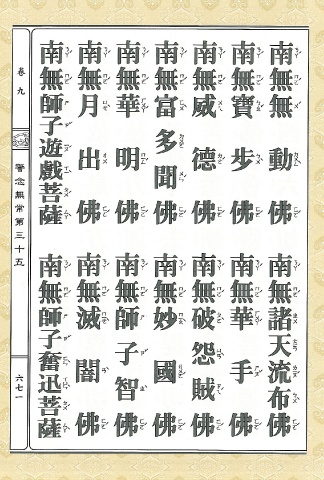 南無無動佛　南無諸天流布佛
南無寶步佛　南無華手佛
南無威德佛　南無破怨賊佛
南無富多聞佛　南無妙國佛
南無華明佛　南無師子智佛
南無月出佛　南無滅闇佛
南無師子遊戲菩薩　南無師子奮迅菩薩
卷九
警念無常第三十五
六七一